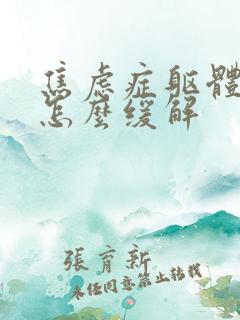 焦虑症躯體
怎麼缓解
張育新
未经同意禁止转载